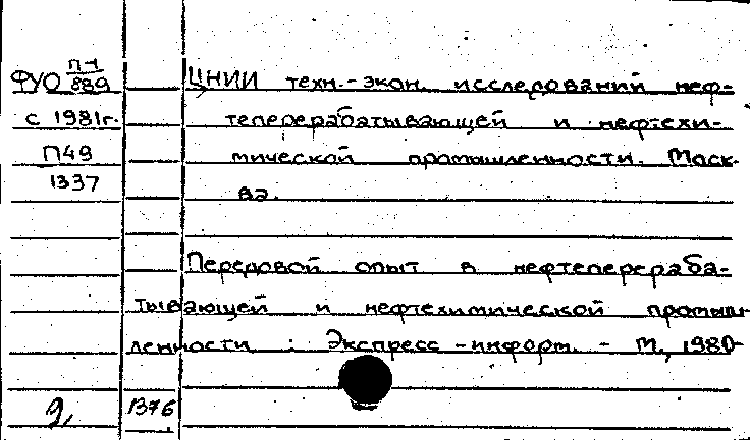 П-1
ФУО 889 ЦНИИ техн.-экон. исследований неф-
с 1981г. теперерабатывающей и нефтехи-
П49 мической промышленности. Моск-
1337 ва.
Передовой опыт в нефтеперераба-
тывающей и нефтехимической промыш-
ленности : Экспресс-информ. - М., 1980-
1376